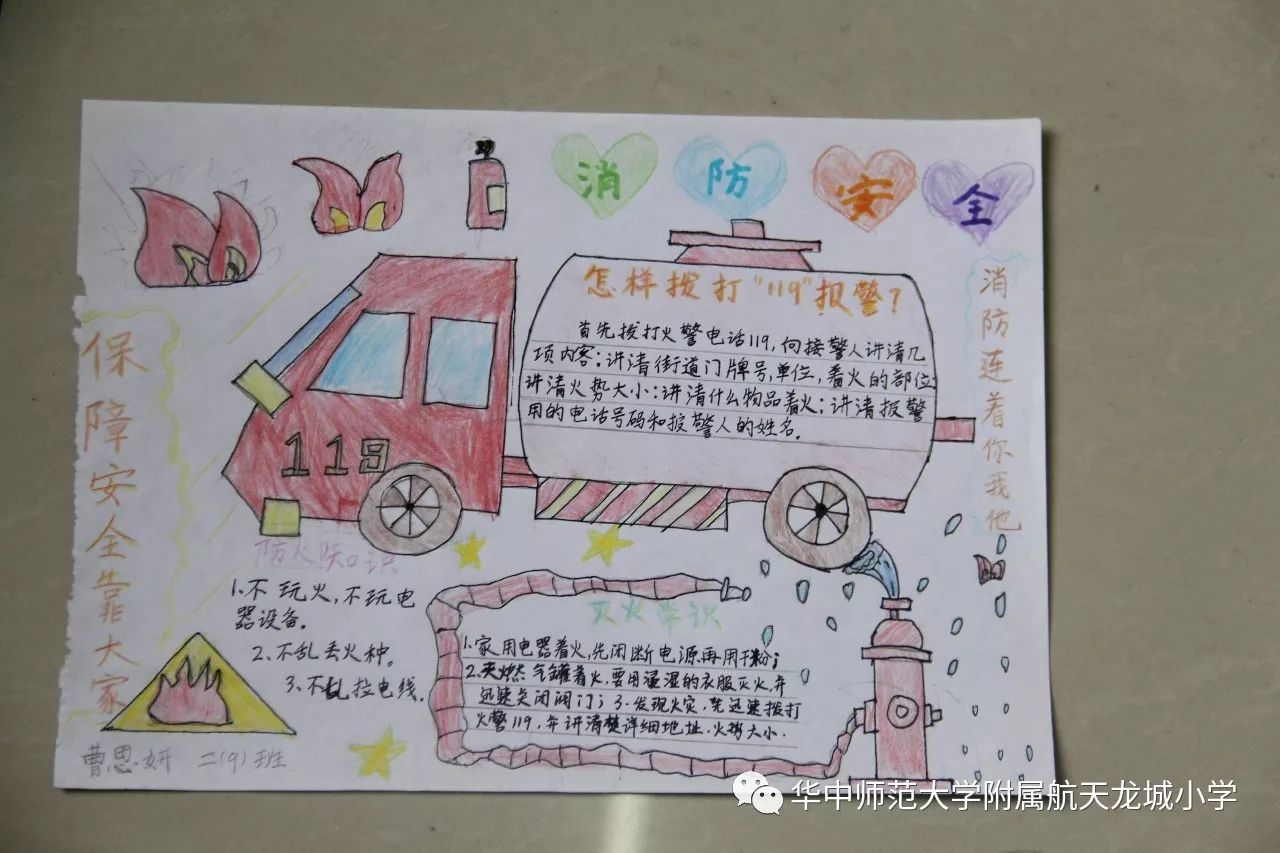 消防安全
保障安全靠大家
消防连着你我他
怎样拨打"119"报警?
首先拔打火警电话119,向接警人讲清几
项内容:讲清街道门牌号,单位,着火的部位
讲清火势大小:讲清什么物品着火;讲清报警
用的电话号码和报警人的姓名。
119
防火知识
1.不玩火,不玩电
器设备。
2.不乱丢火种。
3.不乱拉电线.
灭火常识
1.家用电器着火,先闭断电源再用干粉;
2.天燃气罐着火,要用湿湿的衣服灭火,并
迅速关闭阀门;3.发现火灾,先迅速拨打
火警119,并讲清楚详细地址,火势大小.
曹思妍 二(9)班
华中师范大学附属航天龙城小学